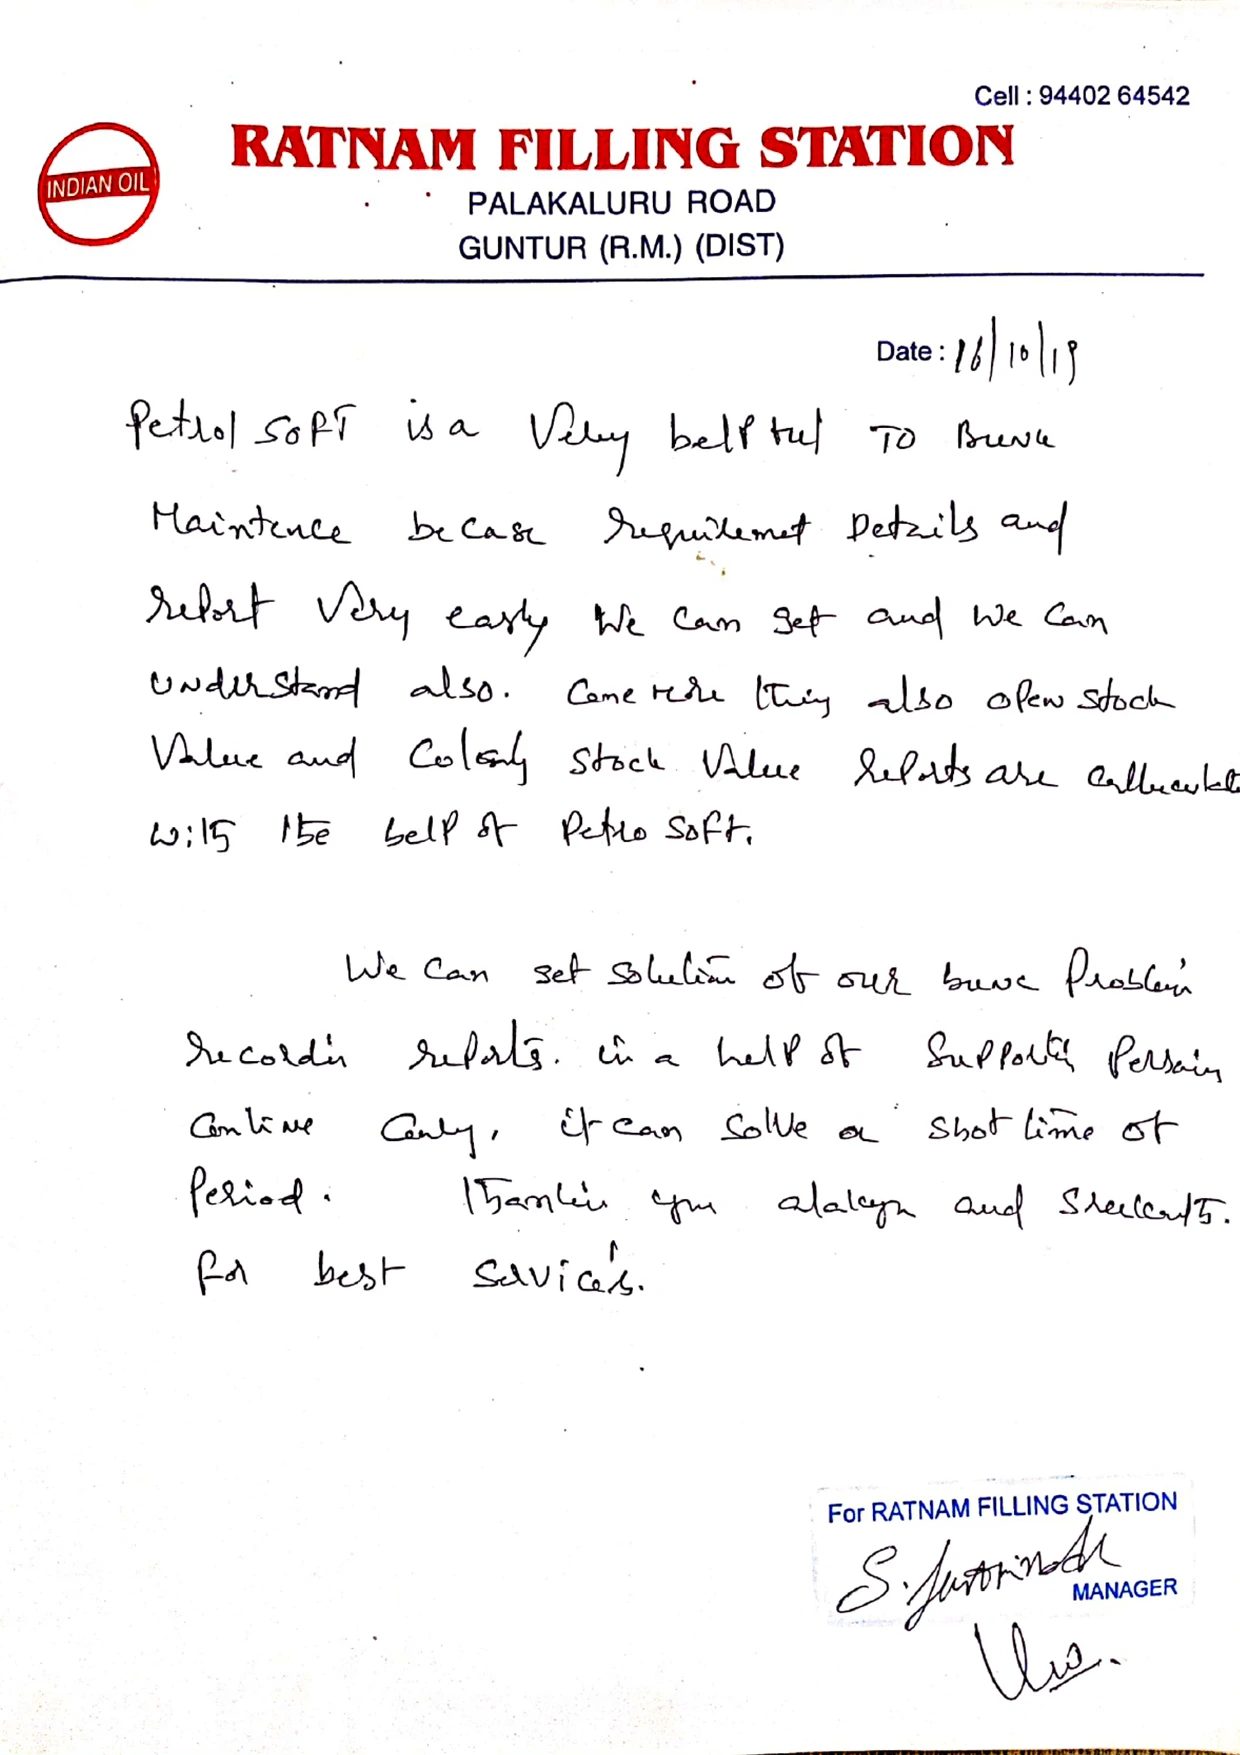 Cell : 94402 64542
INDIAN OIL
RATNAM FILLING STATION
PALAKALURU ROAD
GUNTUR (R.M.) (DIST)
Date : 16/10/19
Petrol SOFT is a Very helpful TO Bunk
Maintence becase requirement Details and
report Very easly We can get and we can
understand also. also open stock
Value and stock Value reports are
with the help of Petro Soft.
We can get solution of our bunk Problem
recordin reports. in a help of Supportin
it can solve a shot time of
Period. and
For best Services.
For RATNAM FILLING STATION
MANAGER